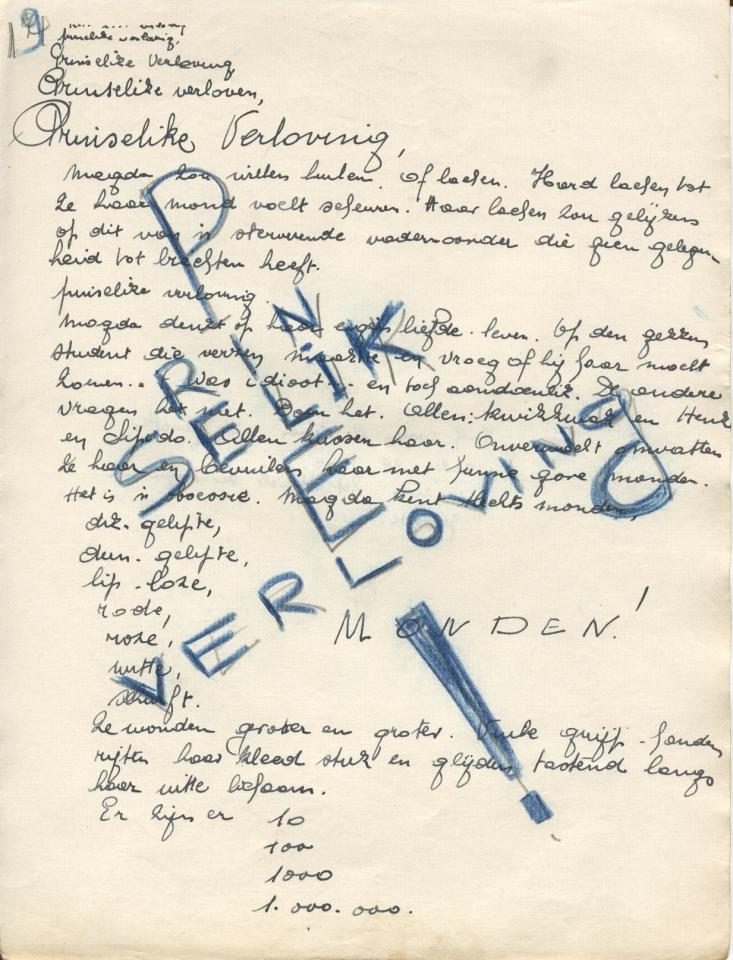 19
prinselike verloving,
Prinselike Verloving,
Prinselike verloven,
Prinselike Verloving,
Magda zou willen huilen. Of lachen. Hard lachen tot
ze haar mond voelt scheuren. Haar lachen zou gelijken
op dit van 'n stervende die geen gelegen-
heid tot biechten heeft.
prinselike verloving.
Magda denkt op haar eigen liefde-leven. Op den gekken
student die verzen maakte en vroeg of hij haar mocht
zoenen.. Was idioot... en toch aandoenlik. De andere
vragen het niet. Doen het. Allen: en Henk
en Allen kussen haar. Onverwacht omvatten
ze haar en bevuilen haar met hunne gore monden.
Het is 'n obsessie. Magda kent slechts monden,
dik-gelipte,
dun-gelipte,
lip-loze,
rode,
roze,
witte,
MONDEN!
Ze worden groter en groter. Vuile grijp-handen
rijten haar kleed stuk en glijden tastend langs
haar witte lichaam.
Er zijn er 10
100
1000
1.000.000.
PRINSELIKE
VERLOVING!